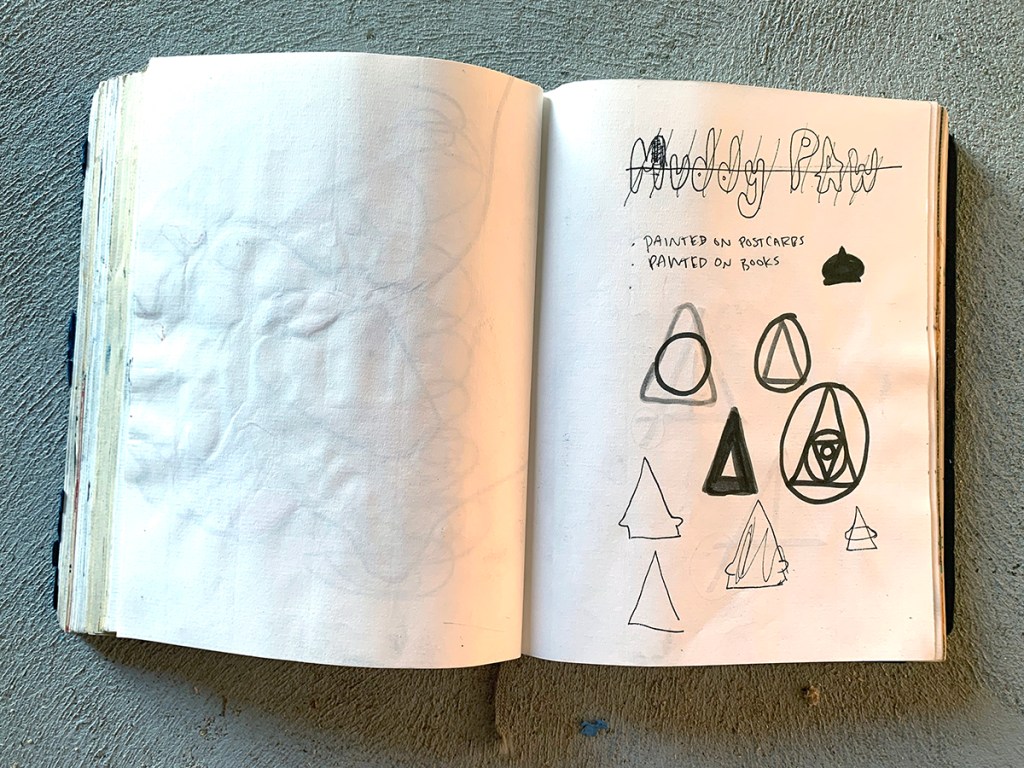 Muddy PAw
· PAINTED ON POSTCARDS
· PAINTED ON BOOKS
·